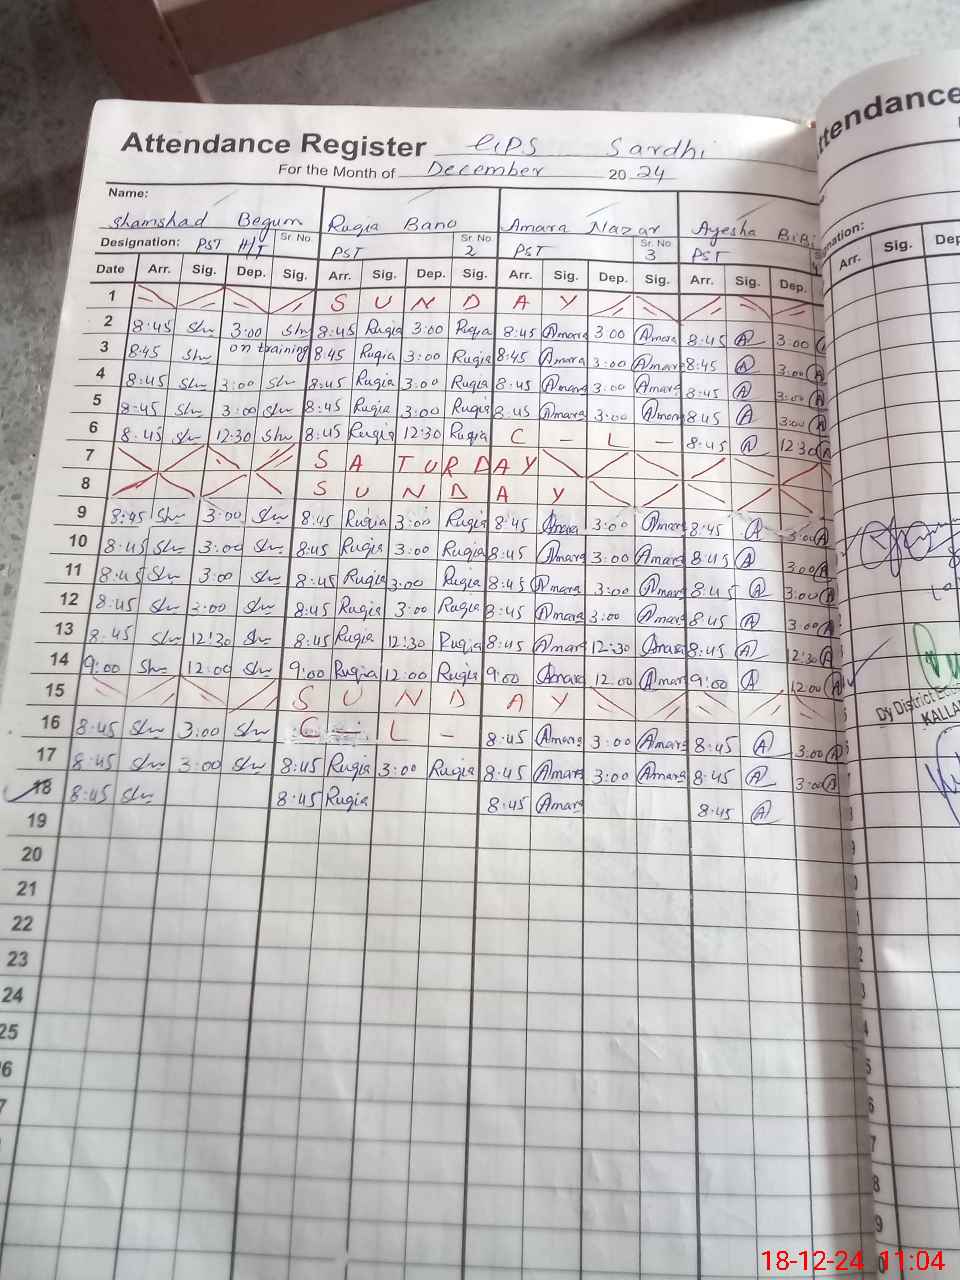 Attendance Register GPS Sardhi
For the Month of December 2024
Name:
Shamshad Begum Ruqia Bano Amara Nazar Ayesha BiBi
Designation: PST H/T Sr. No PST Sr. No 2 PST Sr. No 3 PST
Date Arr. Sig. Dep. Sig. Arr. Sig. Dep. Sig. Arr. Sig. Dep. Sig. Arr. Sig. Dep.
1 S U N D A Y
2 8:45 Sh 3:00 Sh 8:45 Ruqia 3:00 Ruqia 8:45 Amara 3:00 Amara 8:45 A 3:00
3 8:45 Sh on training 8:45 Ruqia 3:00 Ruqia 8:45 Amara 3:00 Amara 8:45 A 3:00 A
4 8:45 Sh 3:00 Sh 8:45 Ruqia 3:00 Ruqia 8:45 Amara 3:00 Amara 8:45 A 3:00 A
5 8:45 Sh 3:00 Sh 8:45 Ruqia 3:00 Ruqia 8:45 Amara 3:00 Amara 8:45 A 3:00 A
6 8:45 Sh 12:30 Sh 8:45 Ruqia 12:30 Ruqia C - L - 8:45 A 12:30 A
7 S A T U R D A Y
8 S U N D A Y
9 8:45 Sh 3:00 Sh 8:45 Ruqia 3:00 Ruqia 8:45 Amara 3:00 Amara 8:45 A 3:00 A
10 8:45 Sh 3:00 Sh 8:45 Ruqia 3:00 Ruqia 8:45 Amara 3:00 Amara 8:45 A 3:00 A
11 8:45 Sh 3:00 Sh 8:45 Ruqia 3:00 Ruqia 8:45 Amara 3:00 Amara 8:45 A 3:00 A
12 8:45 Sh 3:00 Sh 8:45 Ruqia 3:00 Ruqia 8:45 Amara 3:00 Amara 8:45 A 3:00 A
13 8:45 Sh 12:30 Sh 8:45 Ruqia 12:30 Ruqia 8:45 Amara 12:30 Amara 8:45 A 12:30 A
14 9:00 Sh 12:00 Sh 9:00 Ruqia 12:00 Ruqia 9:00 Amara 12:00 Amara 9:00 A 12:00 A
15 S U N D A Y
16 8:45 Sh 3:00 Sh C - L - 8:45 Amara 3:00 Amara 8:45 A 3:00 A
17 8:45 Sh 3:00 Sh 8:45 Ruqia 3:00 Ruqia 8:45 Amara 3:00 Amara 8:45 A 3:00 A
18 8:45 Sh 8:45 Ruqia 8:45 Amara 8:45 A
19
20
21
22
23
24
25
6
7
Attendance
Arr. Sig. Dep
Dy District
KALLA
18-12-24 11:04